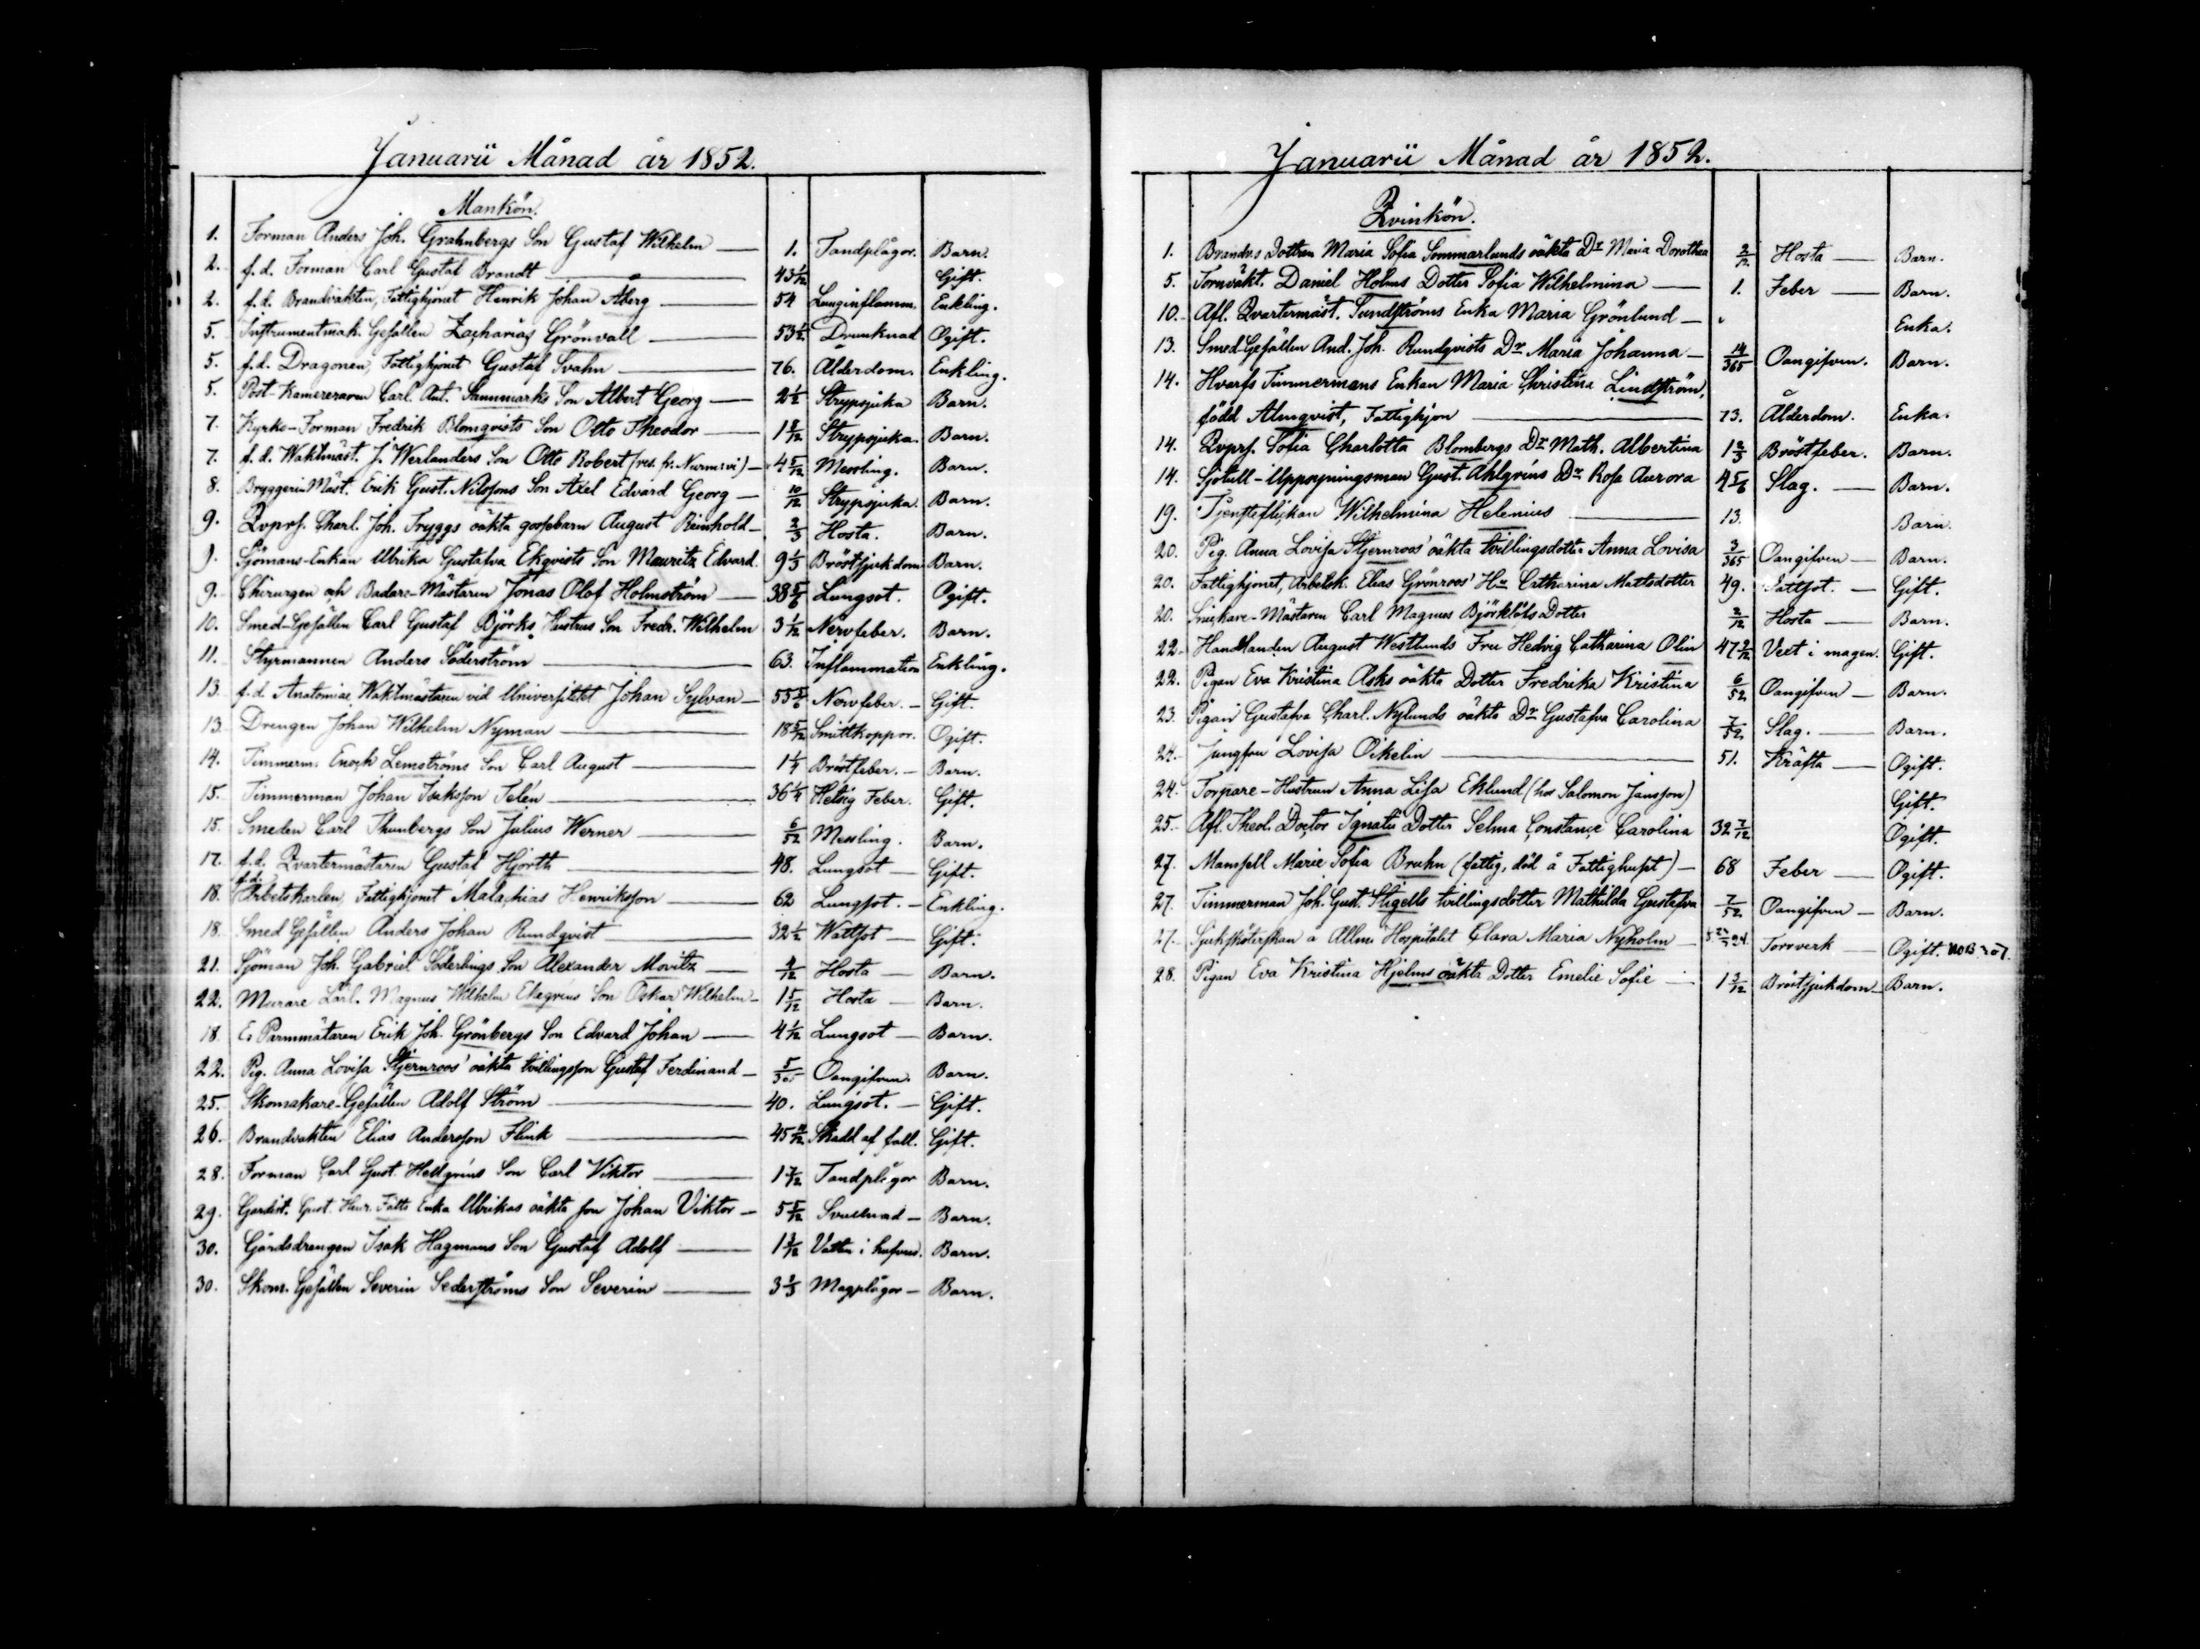 Januarii Månad år 1852.
Mankön.
1. Forman Anders Joh. Grahnbergs Son Gustaf Wilhelm — 1. Tandplågor. Barn.
2. f.d. Forman Carl Gustaf Brandt — 43 1/12 Gift.
2. f.d. Brandvakten, Fattighjonet Henrik Johan Åberg — 54 Lunginflamm. Enkling.
5. Instrumentmak. Gesällen Zacharias Grönvall — 53 1/2 Drunknad Ogift.
5. f.d. Dragonen, Fattighjonet Gustaf Svahn — 76. Ålderdom. Enkling.
5. Post-Kamereraren Carl Ant. Sanmarks Son Albert Georg — 2 1/2 Strypsjuka Barn.
7. Kyrko-Forman Fredrik Blomqvists Son Otto Theodor — 1 8/12 Strypsjuka. Barn.
7. f.d. Waktmäst. J. Werlanders Son Otto Robert (res. fr. Nurmivi) — 4 5/12 Messling. Barn.
8. Bryggeri Mäst. Erik Gust. Nilssons Son Axel Edvard Georg — 10/12 Strypsjuka. Barn.
9. Qvprs. Charl. Joh. Tryggs oäkta gossebarn August Reinhold — 2/3 Hosta. Barn.
9. Sjömans-Enkan Ulrika Gustafva Ekqvists Son Mauritz Edvard. 9 1/3 Bröstsjukdom Barn.
9. Chirurgen och Badare-Mästaren Jonas Olof Holmström — 38 5/6 Lungsot. Ogift.
10. Smed-Gesällen Carl Gustaf Björks Hustrus Son Fredr. Wilhelm 3 1/12 Nervfeber. Barn.
11. Styrmannen Anders Söderström — 63. Inflammation Enkling.
13. f.d. Anatomiæ Waktmästaren vid Universitetet Johan Sylvan — 55 5/6 Nervfeber. — Gift.
13. Drengen Johan Wilhelm Nyman — 18 5/12 Smittkoppor. Ogift.
14. Timmerm. Enoch Lemströms Son Carl August — 1 1/4 Bröstfeber. — Barn.
15. Timmerman Johan Isaksson Telén — 36 1/4 Hetsig Feber. Gift.
15. Smeden Carl Thunbergs Son Julius Werner — 6/52 Messling. Barn.
17. f.d. Qvartermästaren Gustaf Hjorth — 48. Lungsot — Gift.
18. f.d. Arbetskarlen, Fattighjonet Malachias Henriksson — 62 Lungsot. — Enkling.
18. Smed Gesällen Anders Johan Rundqvist — 32 1/2 Wattsot — Gift.
21. Sjöman Joh. Gabriel Söderlings Son Alexander Moritz — 4/12 Hosta — Barn.
22. Murare Lärl. Magnus Wilhelm Ekegréns Son Oskar Wilhelm — 1 5/12 Hosta — Barn.
18. Parmmätaren Erik Joh. Grönbergs Son Edvard Johan — 4 1/12 Lungsot — Barn.
22. Pig. Anna Lovisa Stjernroos' oäkta tvillingsson Gustaf Ferdinand — 5/365 Oangifven. Barn.
25. Skomakare-Gesällen Adolf Ström — 40. Lungsot. — Gift.
26. Brandvakten Elias Andersson Flink — 45 Skadd af fall. Gift.
28. Forman Carl Gust. Hellgréns Son Carl Viktor — 1 7/12 Tandplågor Barn.
29. Gardist. Gust. Henr. Fälts Enka Ulrikas oäkta son Johan Viktor — 5 5/12 Svullnad — Barn.
30. Gårdsdrengen Isak Hagmans Son Gustaf Adolf — 1 3/12 Vatten i hufvud. Barn.
30. Skom. Gesällen Severin Sederströms Son Severin — 3 1/3 Magplågor — Barn.
Januarii Månad år 1852.
Qvinkön.
1. Brandv:s Dottren Maria Sofia Sommarlunds oäkta Dr Maria Dorothea 2/12 Hosta — Barn.
5. Tornväkt. Daniel Holms Dotter Sofia Wilhelmina — 1. Feber — Barn.
10. Afl. Qvartermäst. Sundströms Enka Maria Grönlund — Enka.
13. Smed-Gesällen And. Joh. Rundqvists Dr Maria Johanna — 14/365 Oangifven. Barn.
14. Hvarfs Timmermans Enkan Maria Christina Lindström,
född Almqvist, Fattighjon — 73. Ålderdom. Enka.
14. Qvprs. Sofia Charlotta Blombergs Dr Math. Albertina 1 2/3 Bröstfeber. Barn.
14. Sjötull-Uppsyningsman Gust. Ahlgréns Dr Rosa Aurora 4 5/6 Slag. — Barn.
19. Tjensteflickan Wilhelmina Helenius — 13. Barn.
20. Pig. Anna Lovisa Stjernroos' oäkta tvillingsdotter Anna Lovisa 3/365 Oangifven — Barn.
20. Fattighjonet, Arbetsk. Elias Grönroos' Hu Catharina Mattsdotter 49. Wattsot. — Gift.
20. Snickare-Mästaren Carl Magnus Björklöfs Dotter 2/12 Hosta — Barn.
22. Handlanden August Westlunds Fru Hedvig Catharina Olin 47 9/12 Vext i magen. Gift.
22. Pigan Eva Kristina Asks oäkta Dotter Fredrika Kristina 6/52 Oangifven — Barn.
23. Pigan Gustafva Charl. Nylunds oäkta Dr Gustafva Carolina 7/52 Slag. — Barn.
24. Jungfru Lovisa Oikelin — 51. Kräfta — Ogift.
24. Torpare-Hustrun Anna Lisa Eklund (hos Salomon Jansson) Gift.
25. Afl. Theol. Doctor Ignatii Dotter Selma Constance Carolina 32 7/12 Ogift.
27. Mamsell Marie Sofia Bruhn (fattig, död å Fattighuset) — 68 Feber — Ogift.
27. Timmerman Joh. Gust. Stigells tvillingsdotter Mathilda Gustafva 7/52 Oangifven — Barn.
27. Sjuksköterskan å Allm: Hospitalet Clara Maria Nyholm — Torrverk — Ogift.
28. Pigan Eva Kristina Hjelms oäkta Dotter Emelie Sofie — 1 3/12 Bröstsjukdom — Barn.